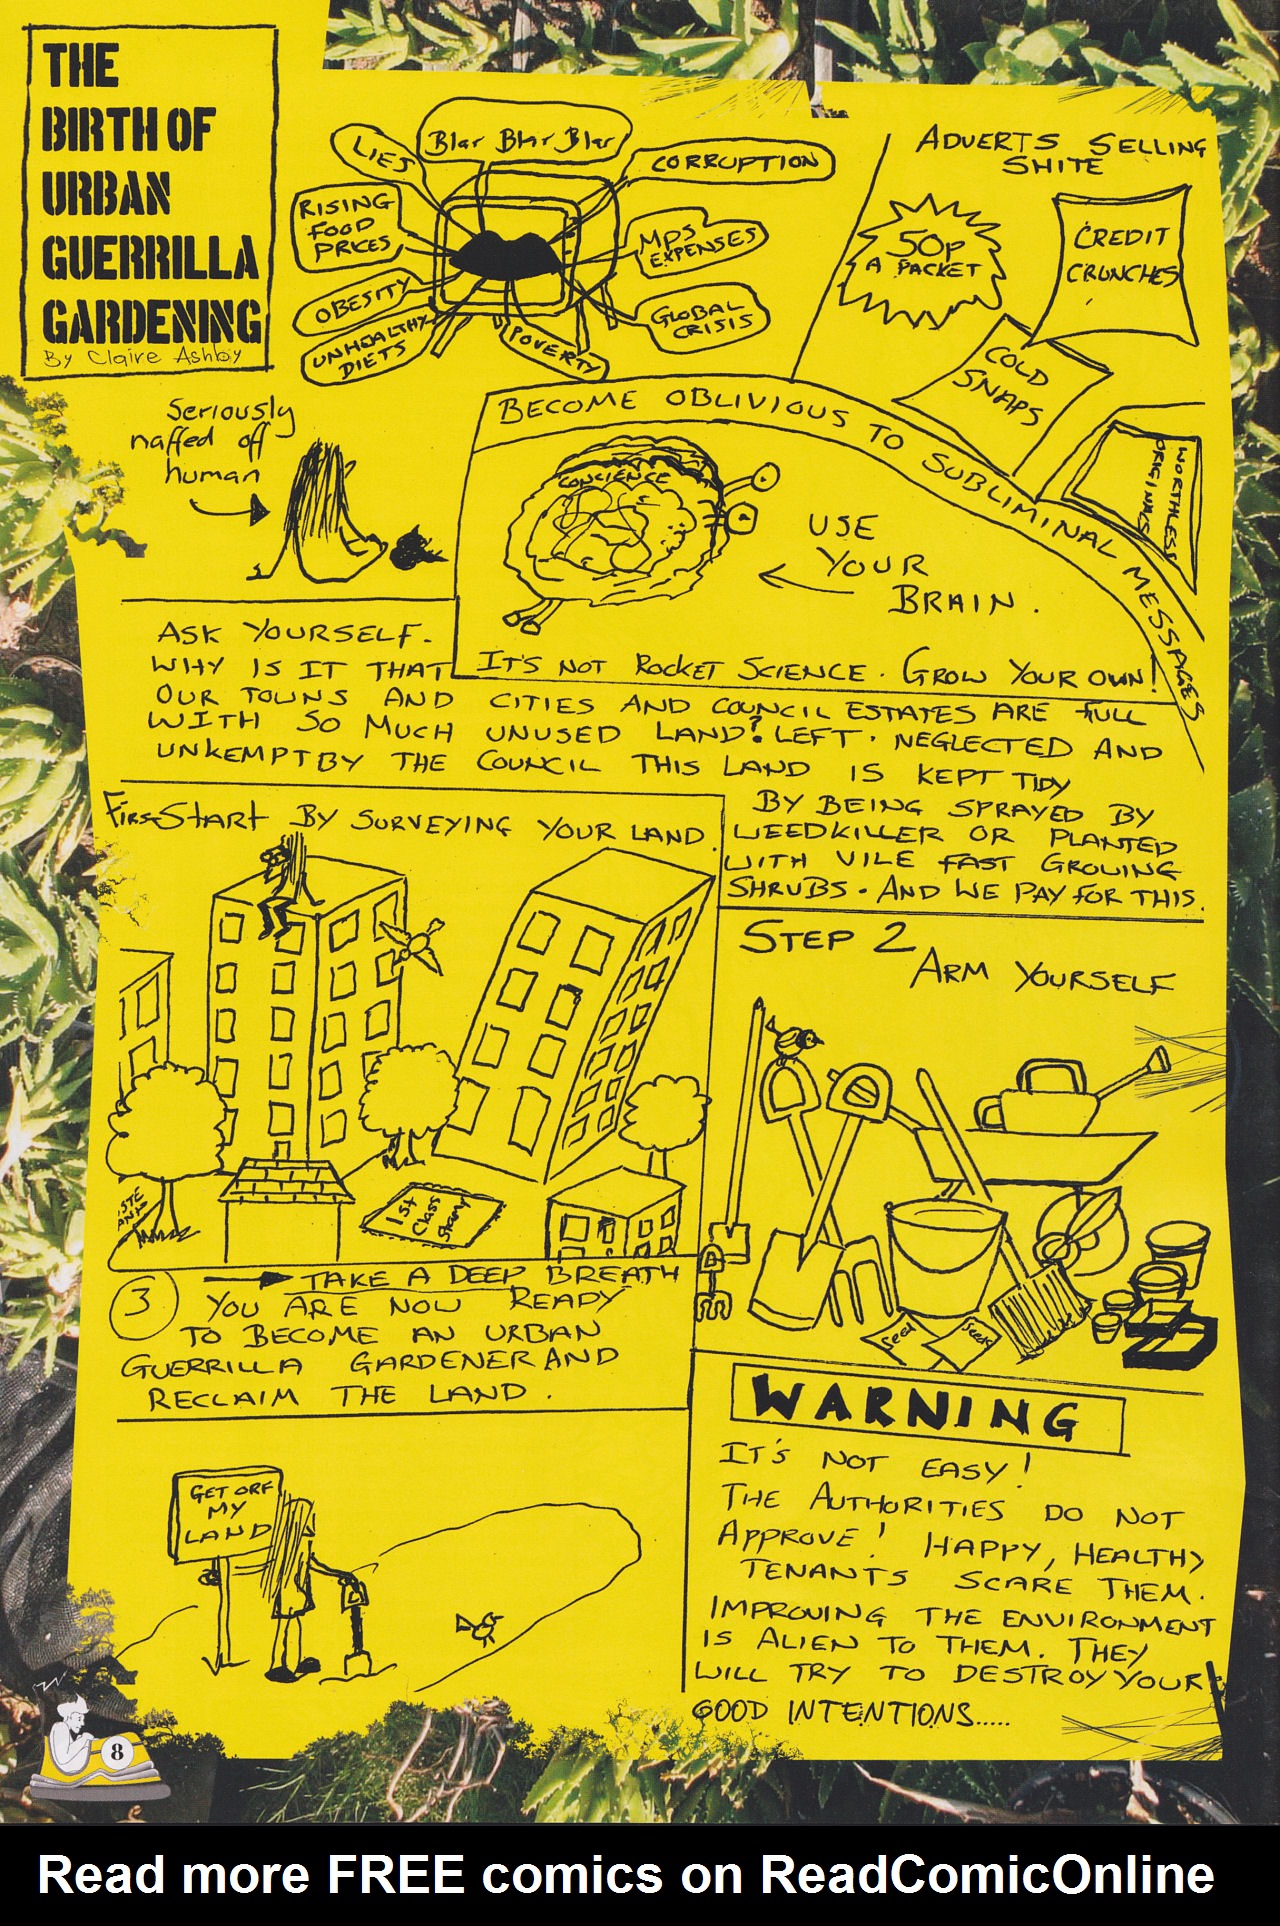 THE
BIRTH OF
URBAN
GUERRILLA
GARDENING
By Claire Ashby
LIES
Blar Blar Blar
CORRUPTION
RISING
FOOD
PRICES
MPS
EXPENSES
OBESITY
GLOBAL
CRISIS
UNHEALTHY
DIETS
POVERTY
ADVERTS SELLING
SHITE
50p
A PACKET
CREDIT
CRUNCHES
COLD
SNAPS
WORTHLESS
ORIGINALS
Seriously
naffed off
human
BECOME OBLIVIOUS TO SUBLIMINAL MESSAGES
CONCIENCE
USE
YOUR
BRAIN.
IT'S NOT ROCKET SCIENCE. GROW YOUR OWN!
ASK YOURSELF.
WHY IS IT THAT
OUR TOWNS AND CITIES AND COUNCIL ESTATES ARE FULL
WITH SO MUCH UNUSED LAND? LEFT. NEGLECTED AND
UNKEMPT BY THE COUNCIL THIS LAND IS KEPT TIDY
BY BEING SPRAYED BY
WEEDKILLER OR PLANTED
WITH VILE FAST GROWING
SHRUBS. AND WE PAY FOR THIS.
First START BY SURVEYING YOUR LAND.
1st
Class
STEP 2
ARM YOURSELF
seed
seeds
3
TAKE A DEEP BREATH
YOU ARE NOW READY
TO BECOME AN URBAN
GUERRILLA GARDENER AND
RECLAIM THE LAND.
GET ORF
MY
LAND
WARNING
IT'S NOT EASY!
THE AUTHORITIES DO NOT
APPROVE! HAPPY, HEALTHY
TENANTS SCARE THEM.
IMPROVING THE ENVIRONMENT
IS ALIEN TO THEM. THEY
WILL TRY TO DESTROY YOUR
GOOD INTENTIONS.....
8
Read more FREE comics on ReadComicOnline